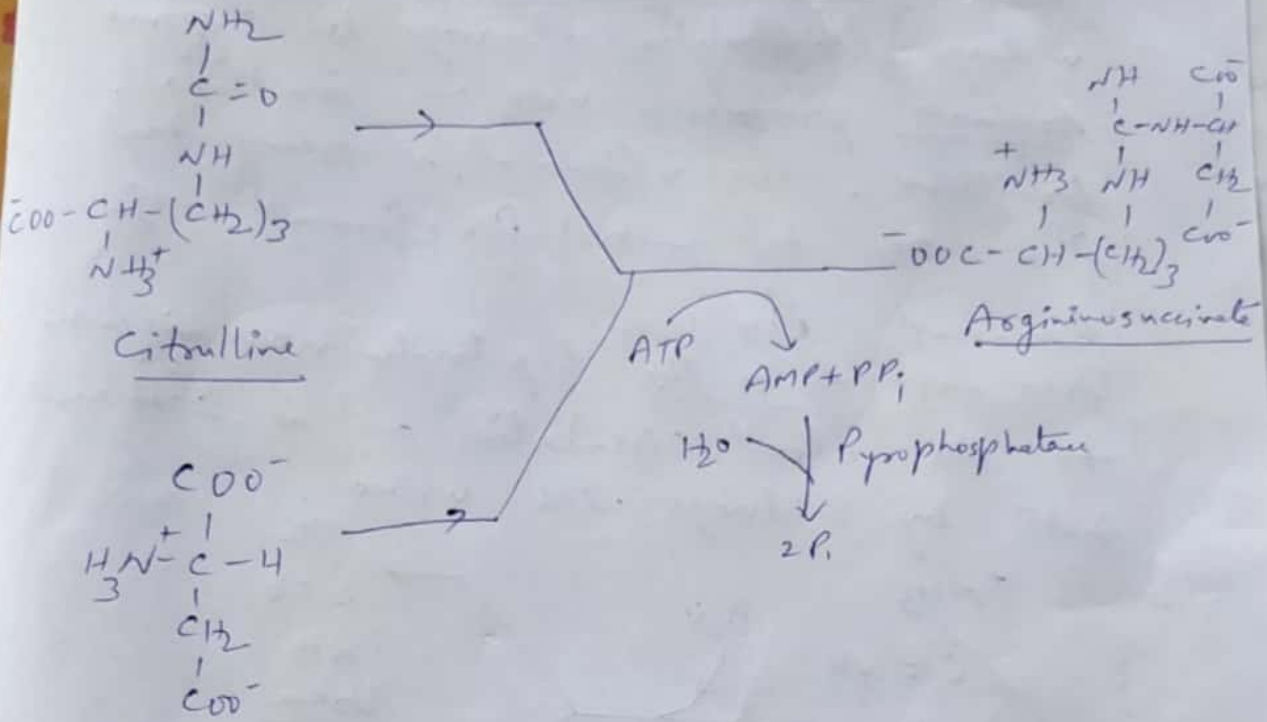 NH2
C=O
NH
-COO-CH-(CH2)3
NH3+
Citrulline
COO-
H3N+-C-H
CH2
COO-
ATP
AMP+PPi
H2O
Pyrophosphatase
2Pi
NH COO-
C-NH-CH
+NH3 NH CH2
-OOC-CH-(CH2)3 COO-
Argininosuccinate